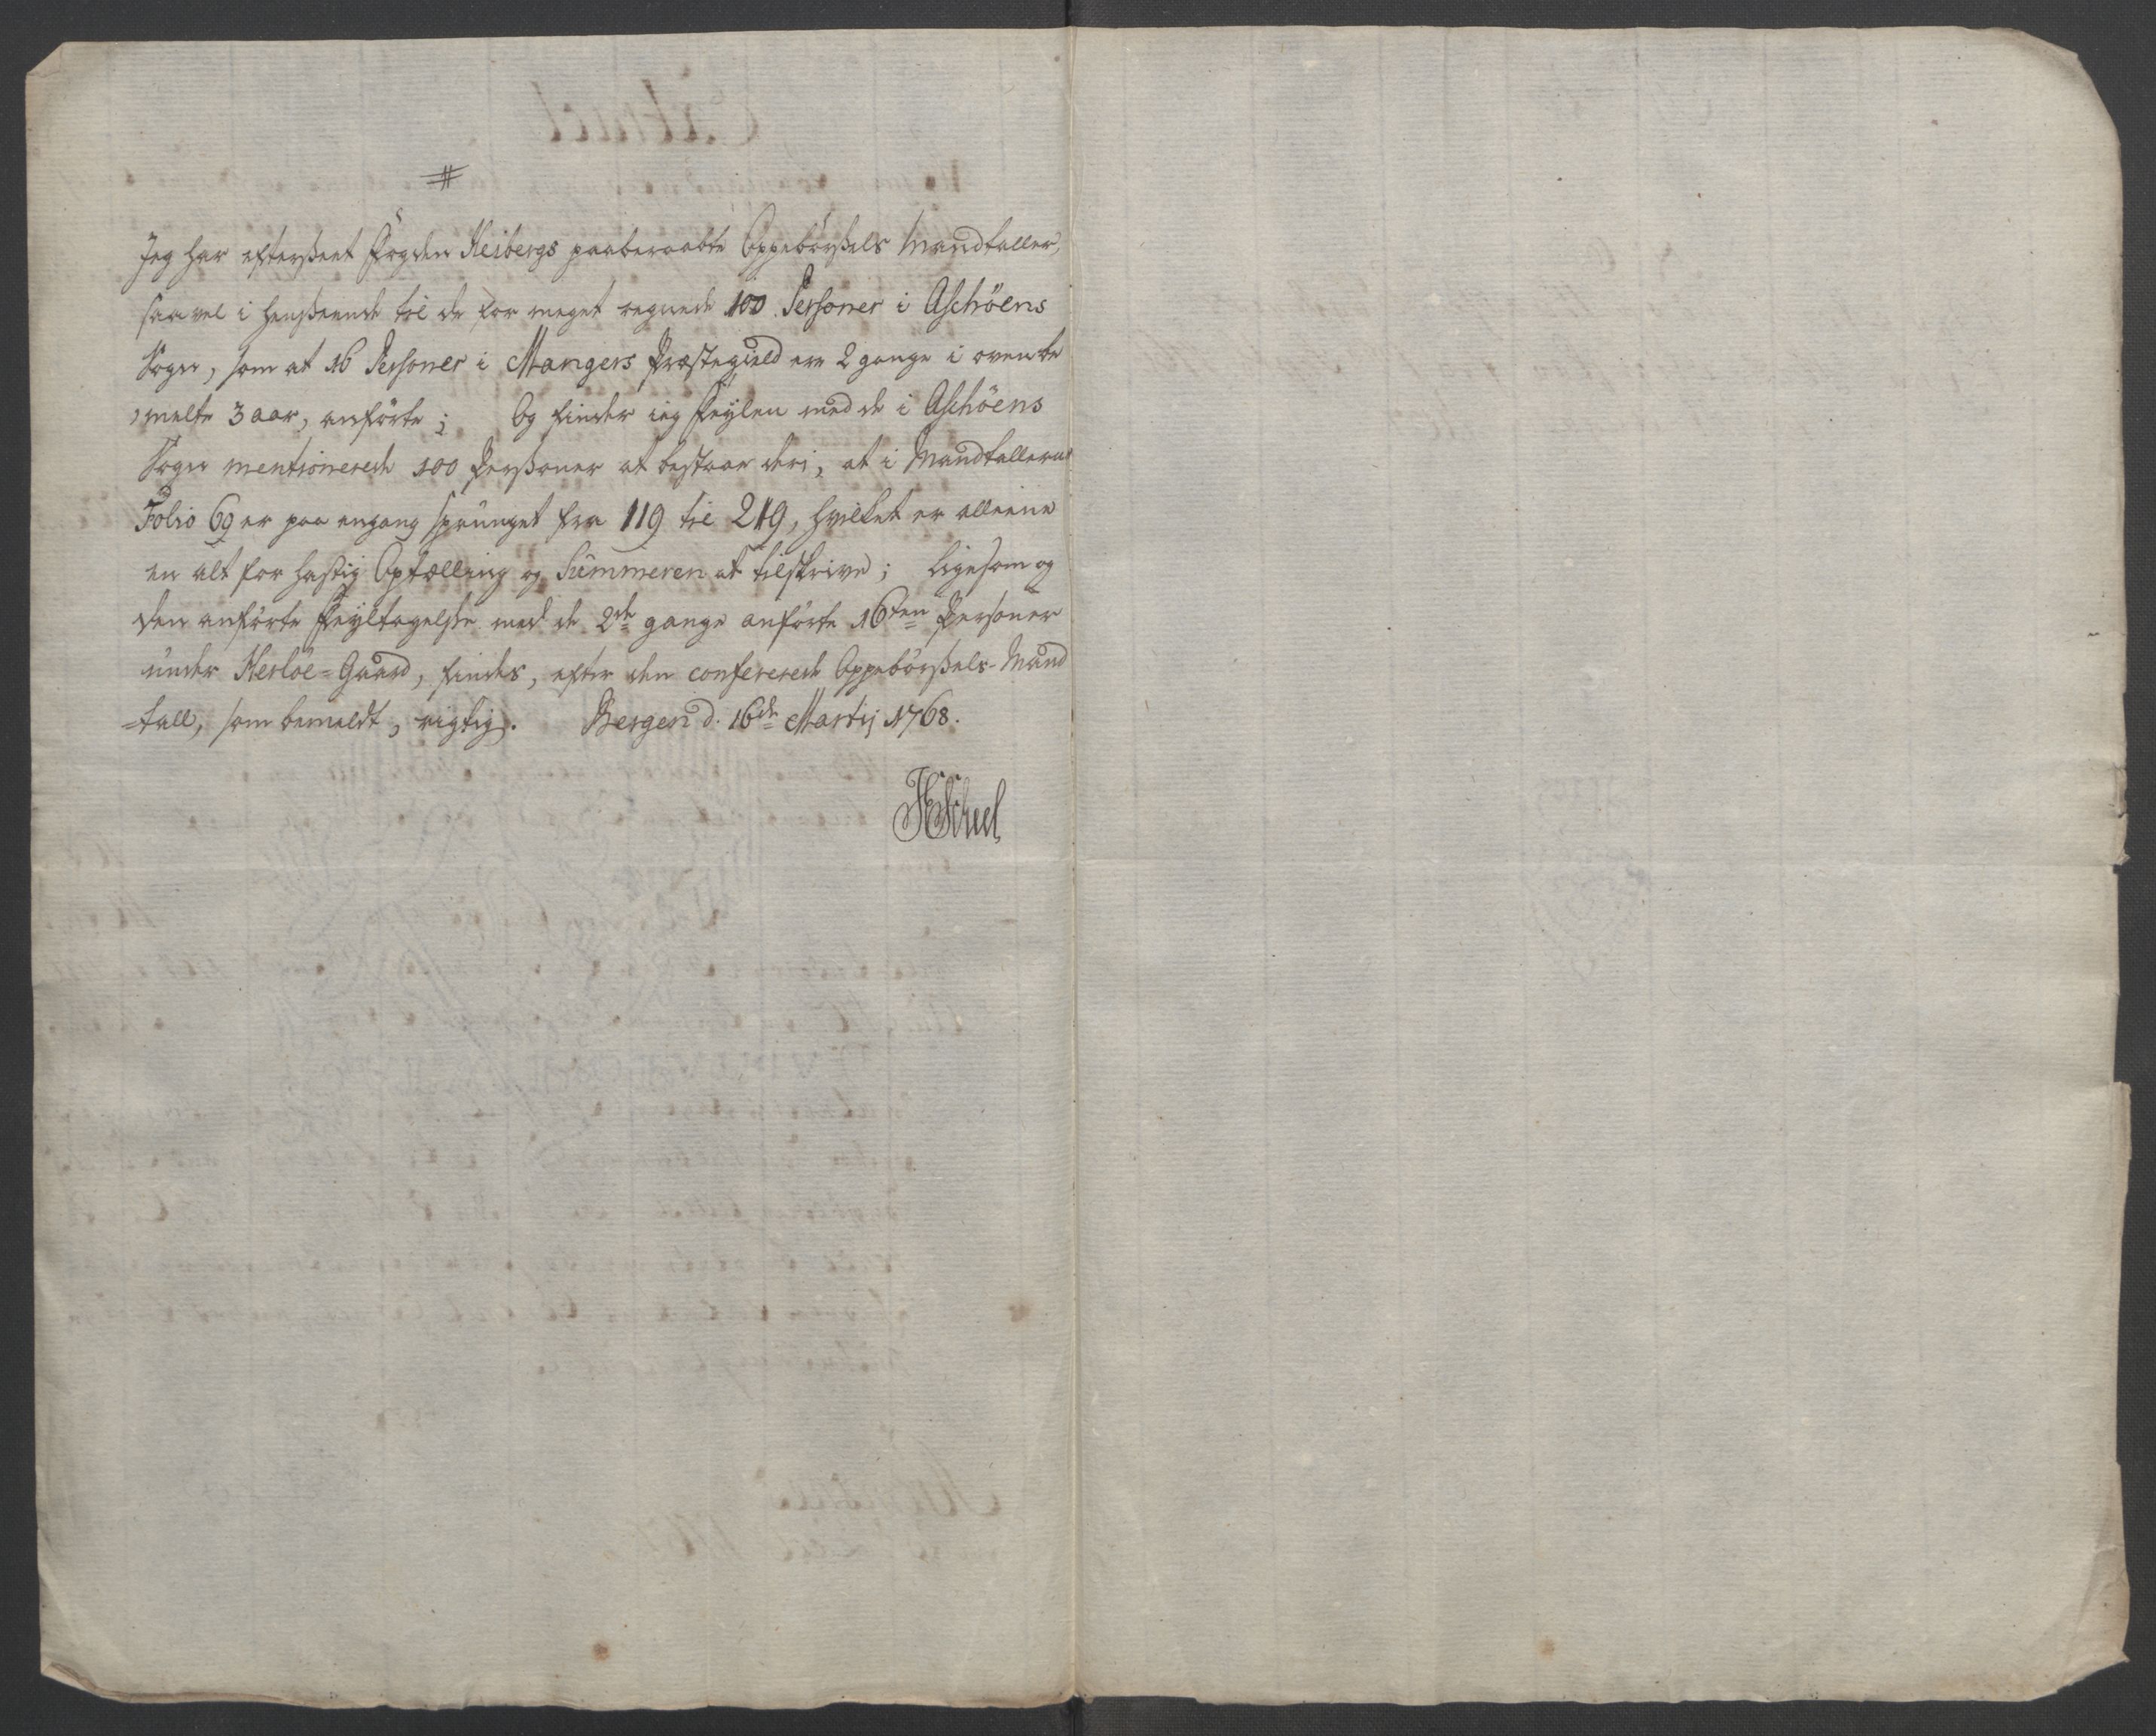 #
Jeg har efterßeet Fogden Heibergs paaberaabte Oppebörßels Mandtaller,
saavel i Henßeende til de for meget regnede 100 Personer i Aschöens
Sogn, som at 16 Personer i Mangers Præstegield ere 2 gange i ovenbe
melte 3 aar, anförte; Og finder ieg Feylen med de i Aschöens
Sogn mentionerede 100 Perßoner at bestaae deri, at i Mandtallerne
Folio 69 er paa engang sprunget fra 119 til 219, hvilket er alleene
en alt for hastig Optælling og Summeren at tilskrive; ligesom og
den anförte Feyltagelße med de 2de gange anförte 16ten Personer
under Herlöe-Gaard, findes, efter den confererede Oppebörßels-Mand
=tall, som bemeldt, rigtig. Bergen d. 16de Martij 1768.
HScheel